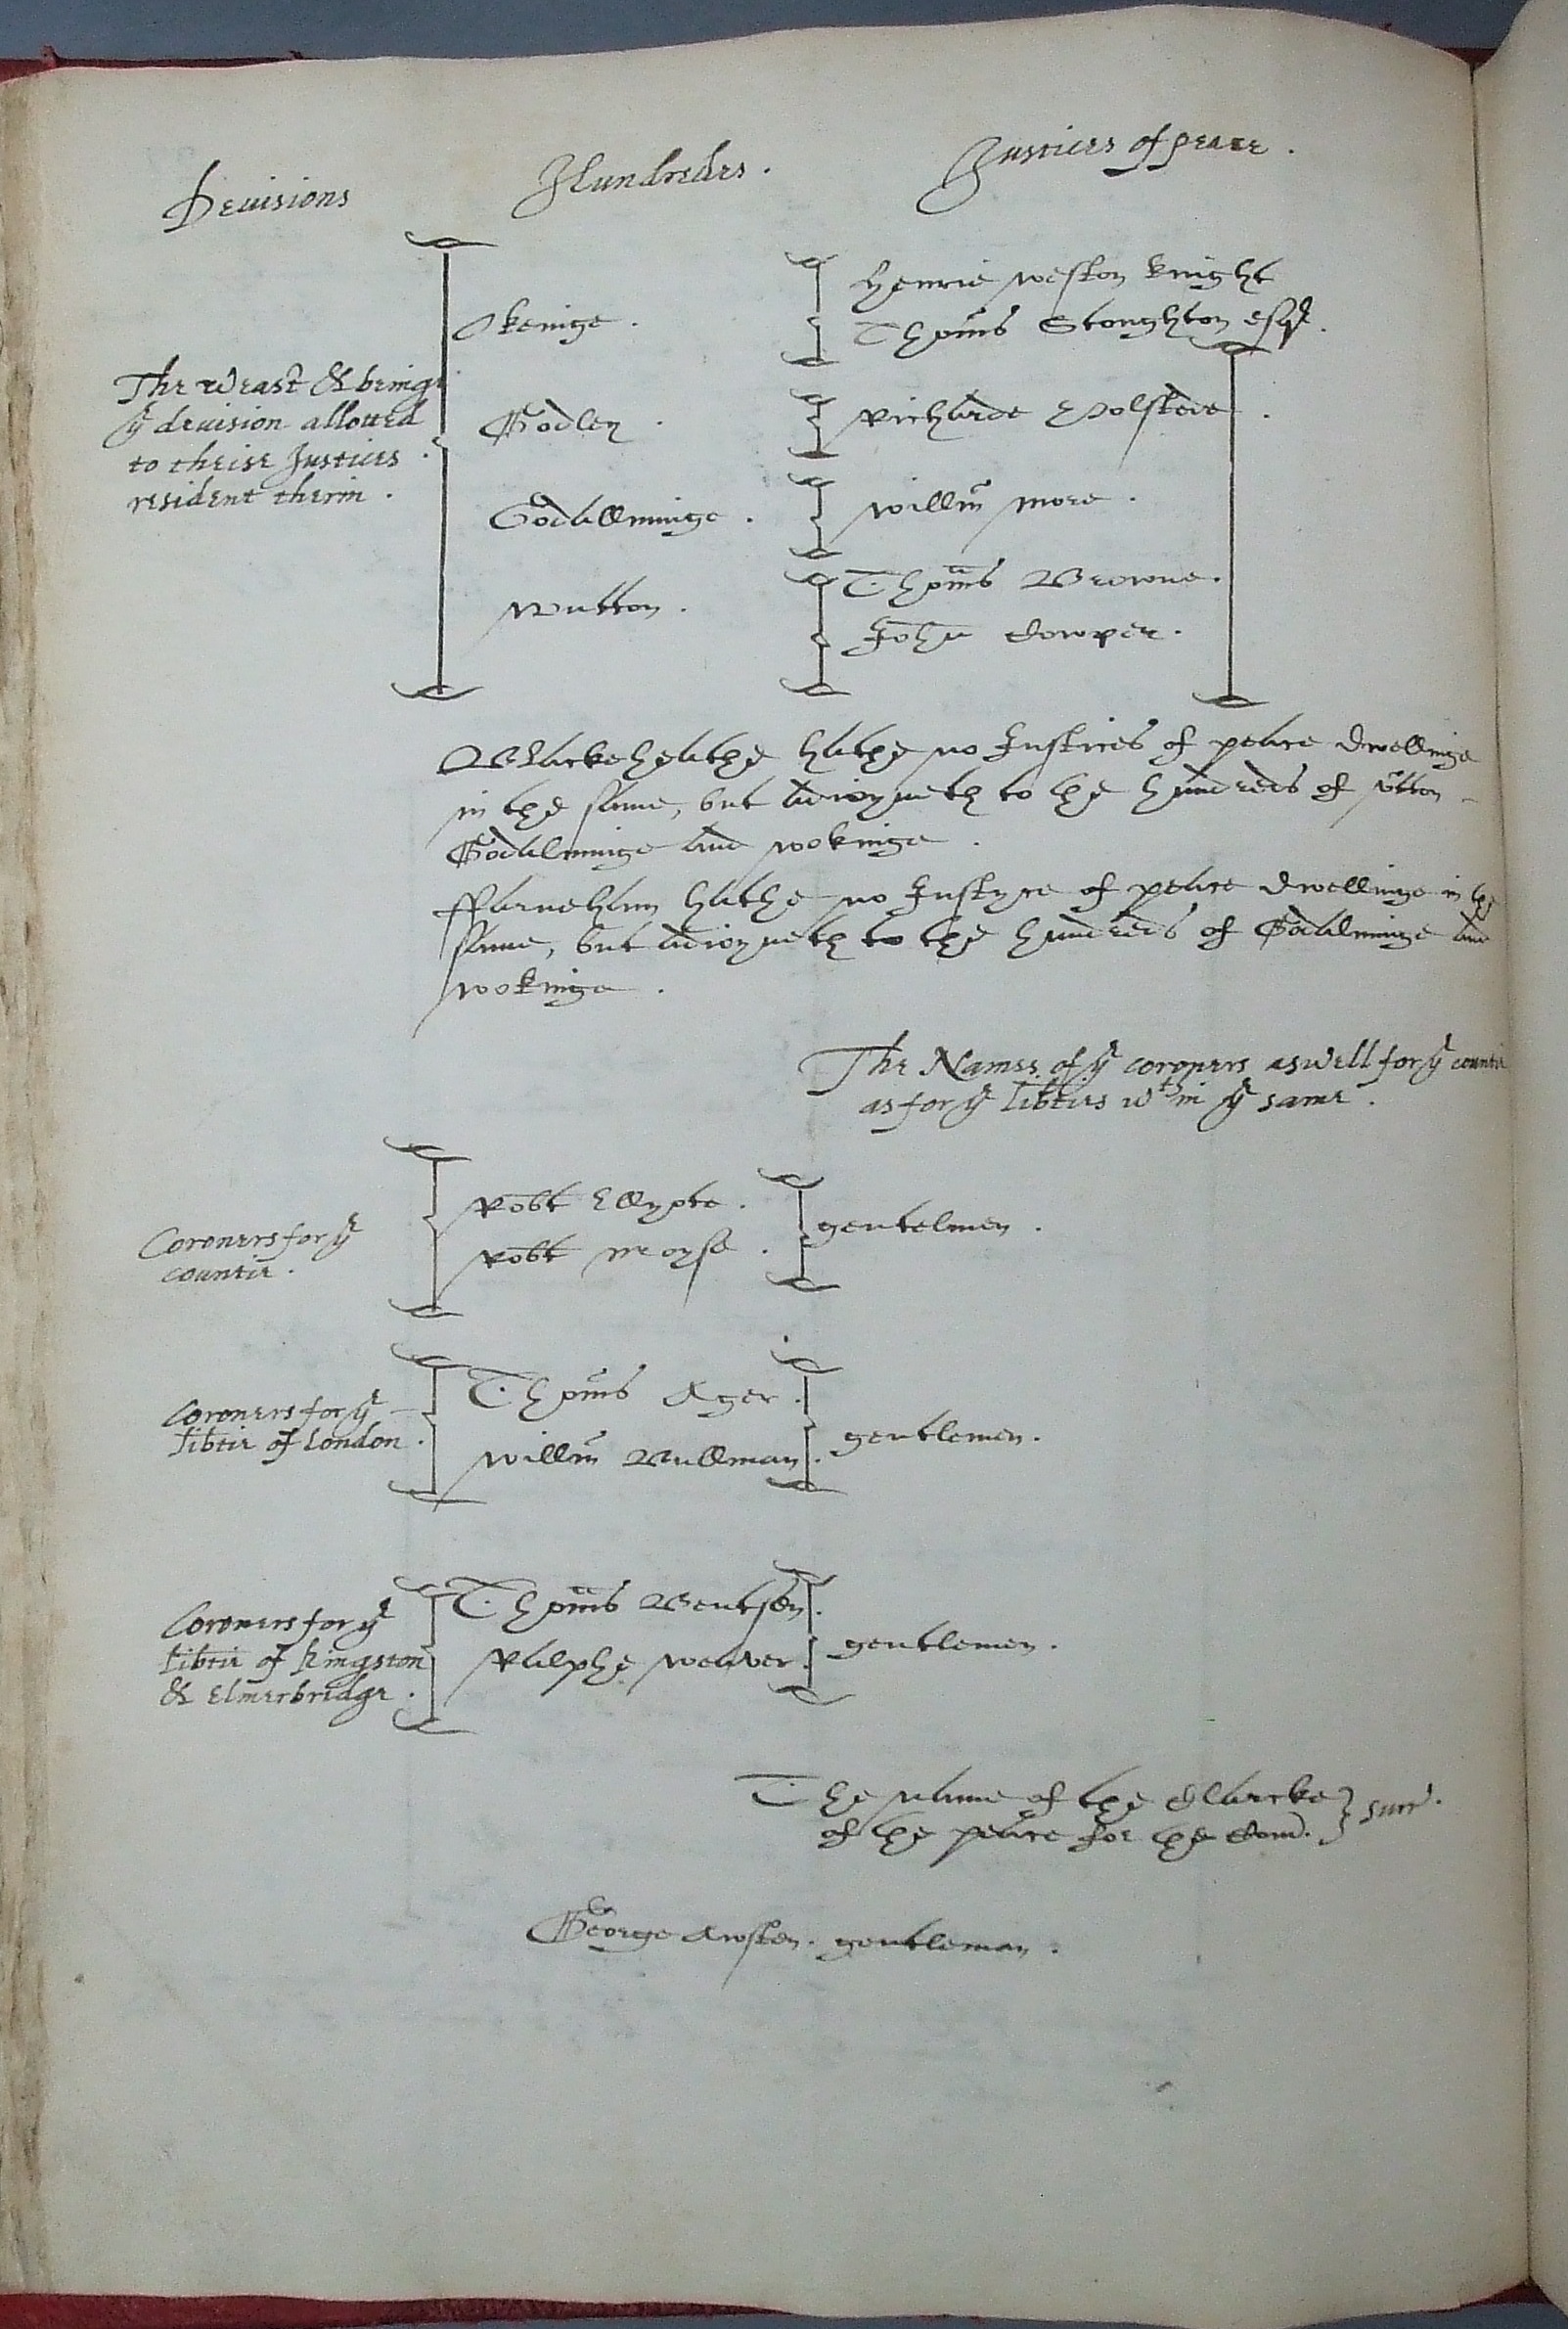 Deuisions
Hundredes .
Justices of peace .
Okeinge .
Henrie Weston knight
Thoms Stoughton esqr .
The Weast & beinge
ye deuision allotted
to theise Justices .
resident therin .
Godley .
Richarde Polsted .
Godallminge .
Willm More .
Wutton .
Thoms Browne .
John Cowper .
Blackeheathe hathe no Justices of peace dwellinge
in the same, but adioyneth to the hundreds of
Godalminge and Wokinge .
ffarneham hathe no Justyce of peace dwellinge in the
same, but adioyneth to the hundreds of Godalminge and
Wokinge .
The Names of ye coroners aswell for ye countie
as for ye libties wth in ye same .
Coroners for ye
countie .
Robt Ellyote .
Robt Moyse .
gentelmen .
Coroners for ye
libtie of London .
Thoms Ager .
Willm Bullman .
gentlemen .
Coroners for ye
libtie of Kingston
& Elmerbridge .
Thoms
Ralphe Weaver .
gentlemen .
The name of the Clarcke
of the peace for the Com . } Surr .
George Awsten . gentleman .